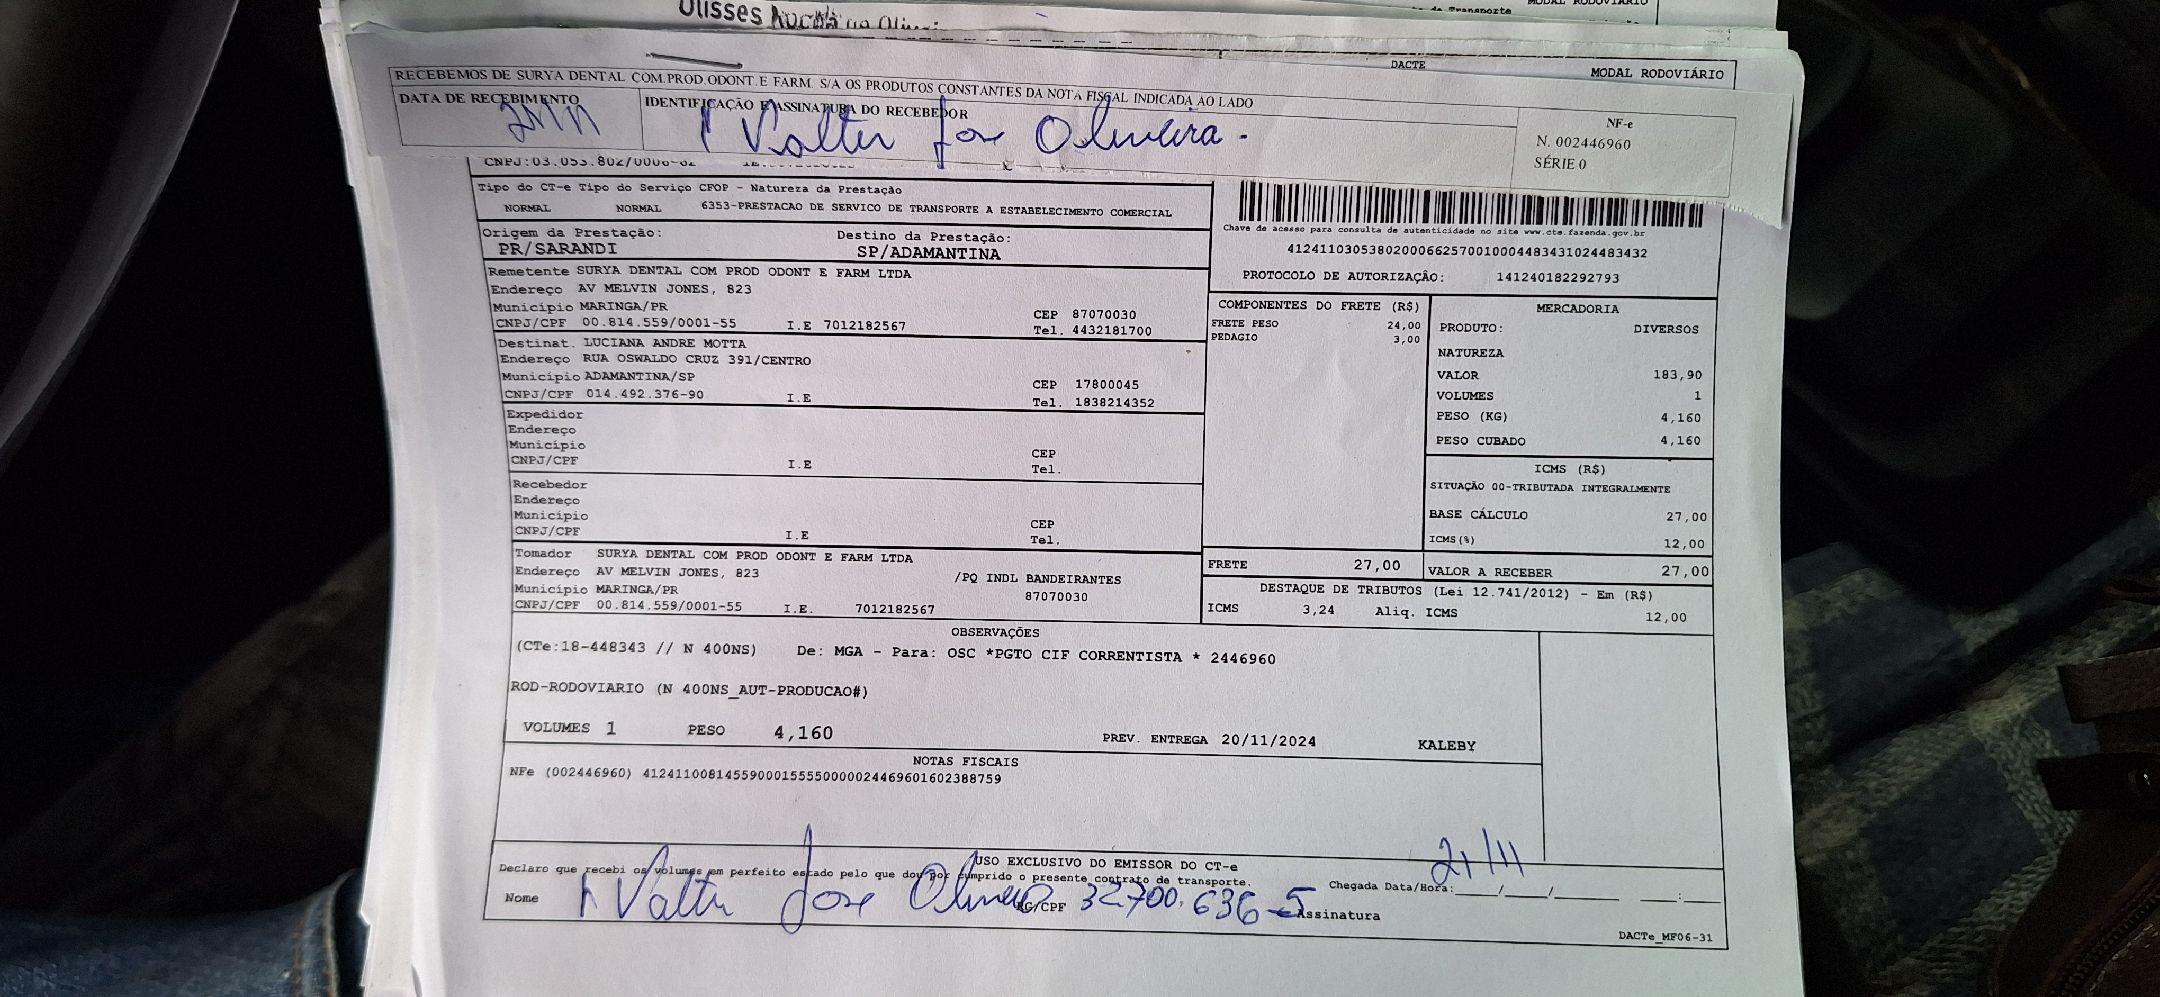 Ulisses
de Transporte MODAL RODOVIÁRIO
DACTE
MODAL RODOVIÁRIO
RECEBEMOS DE SURYA DENTAL COM.PROD.ODONT.E FARM. S/A OS PRODUTOS CONSTANTES DA NOTA FISCAL INDICADA AO LADO
DATA DE RECEBIMENTO
21/11
IDENTIFICAÇÃO E ASSINATURA DO RECEBEDOR
Valter Jose Oliveira
NF-e
N. 002446960
SÉRIE 0
Tipo do CT-e Tipo do Serviço CFOP - Natureza da Prestação
NORMAL NORMAL 6353-PRESTACAO DE SERVICO DE TRANSPORTE A ESTABELECIMENTO COMERCIAL
Origem da Prestação: Destino da Prestação:
PR/SARANDI SP/ADAMANTINA
Chave de acesso para consulta de autenticidade no site www.cte.fazenda.gov.br
41241103053802000662570010004483431024483432
PROTOCOLO DE AUTORIZAÇÃO: 141240182292793
Remetente SURYA DENTAL COM PROD ODONT E FARM LTDA
Endereço AV MELVIN JONES, 823
Município MARINGA/PR CEP 87070030
CNPJ/CPF 00.814.559/0001-55 I.E 7012182567 Tel. 4432181700
Destinat. LUCIANA ANDRE MOTTA
Endereço RUA OSWALDO CRUZ 391/CENTRO
Município ADAMANTINA/SP CEP 17800045
CNPJ/CPF 014.492.376-90 I.E Tel. 1838214352
Expedidor
Endereço
Município CEP
CNPJ/CPF I.E Tel.
Recebedor
Endereço
Município CEP
CNPJ/CPF I.E Tel.
Tomador SURYA DENTAL COM PROD ODONT E FARM LTDA
Endereço AV MELVIN JONES, 823 /PQ INDL BANDEIRANTES
Município MARINGA/PR 87070030
CNPJ/CPF 00.814.559/0001-55 I.E. 7012182567
COMPONENTES DO FRETE (R$)
FRETE PESO 24,00
PEDAGIO 3,00
MERCADORIA
PRODUTO: DIVERSOS
NATUREZA
VALOR 183,90
VOLUMES 1
PESO (KG) 4,160
PESO CUBADO 4,160
ICMS (R$)
SITUAÇÃO 00-TRIBUTADA INTEGRALMENTE
BASE CÁLCULO 27,00
ICMS(%) 12,00
FRETE 27,00 VALOR A RECEBER 27,00
DESTAQUE DE TRIBUTOS (Lei 12.741/2012) - Em (R$)
ICMS 3,24 Aliq. ICMS 12,00
OBSERVAÇÕES
(CTe:18-448343 // N 400NS) De: MGA - Para: OSC *PGTO CIF CORRENTISTA * 2446960
ROD-RODOVIARIO (N 400NS_AUT-PRODUCAO#)
VOLUMES 1 PESO 4,160 PREV. ENTREGA 20/11/2024 KALEBY
NOTAS FISCAIS
NFe (002446960) 41241100814559000155550000024469601602388759
USO EXCLUSIVO DO EMISSOR DO CT-e
Declaro que recebi os volumes em perfeito estado pelo que dou por cumprido o presente contrato de transporte.
21/11
Chegada Data/Hora:___/___/_____ ___:___
Nome Valter Jose Oliveira RG/CPF 32700.636-5 Assinatura
DACTe_MF06-31